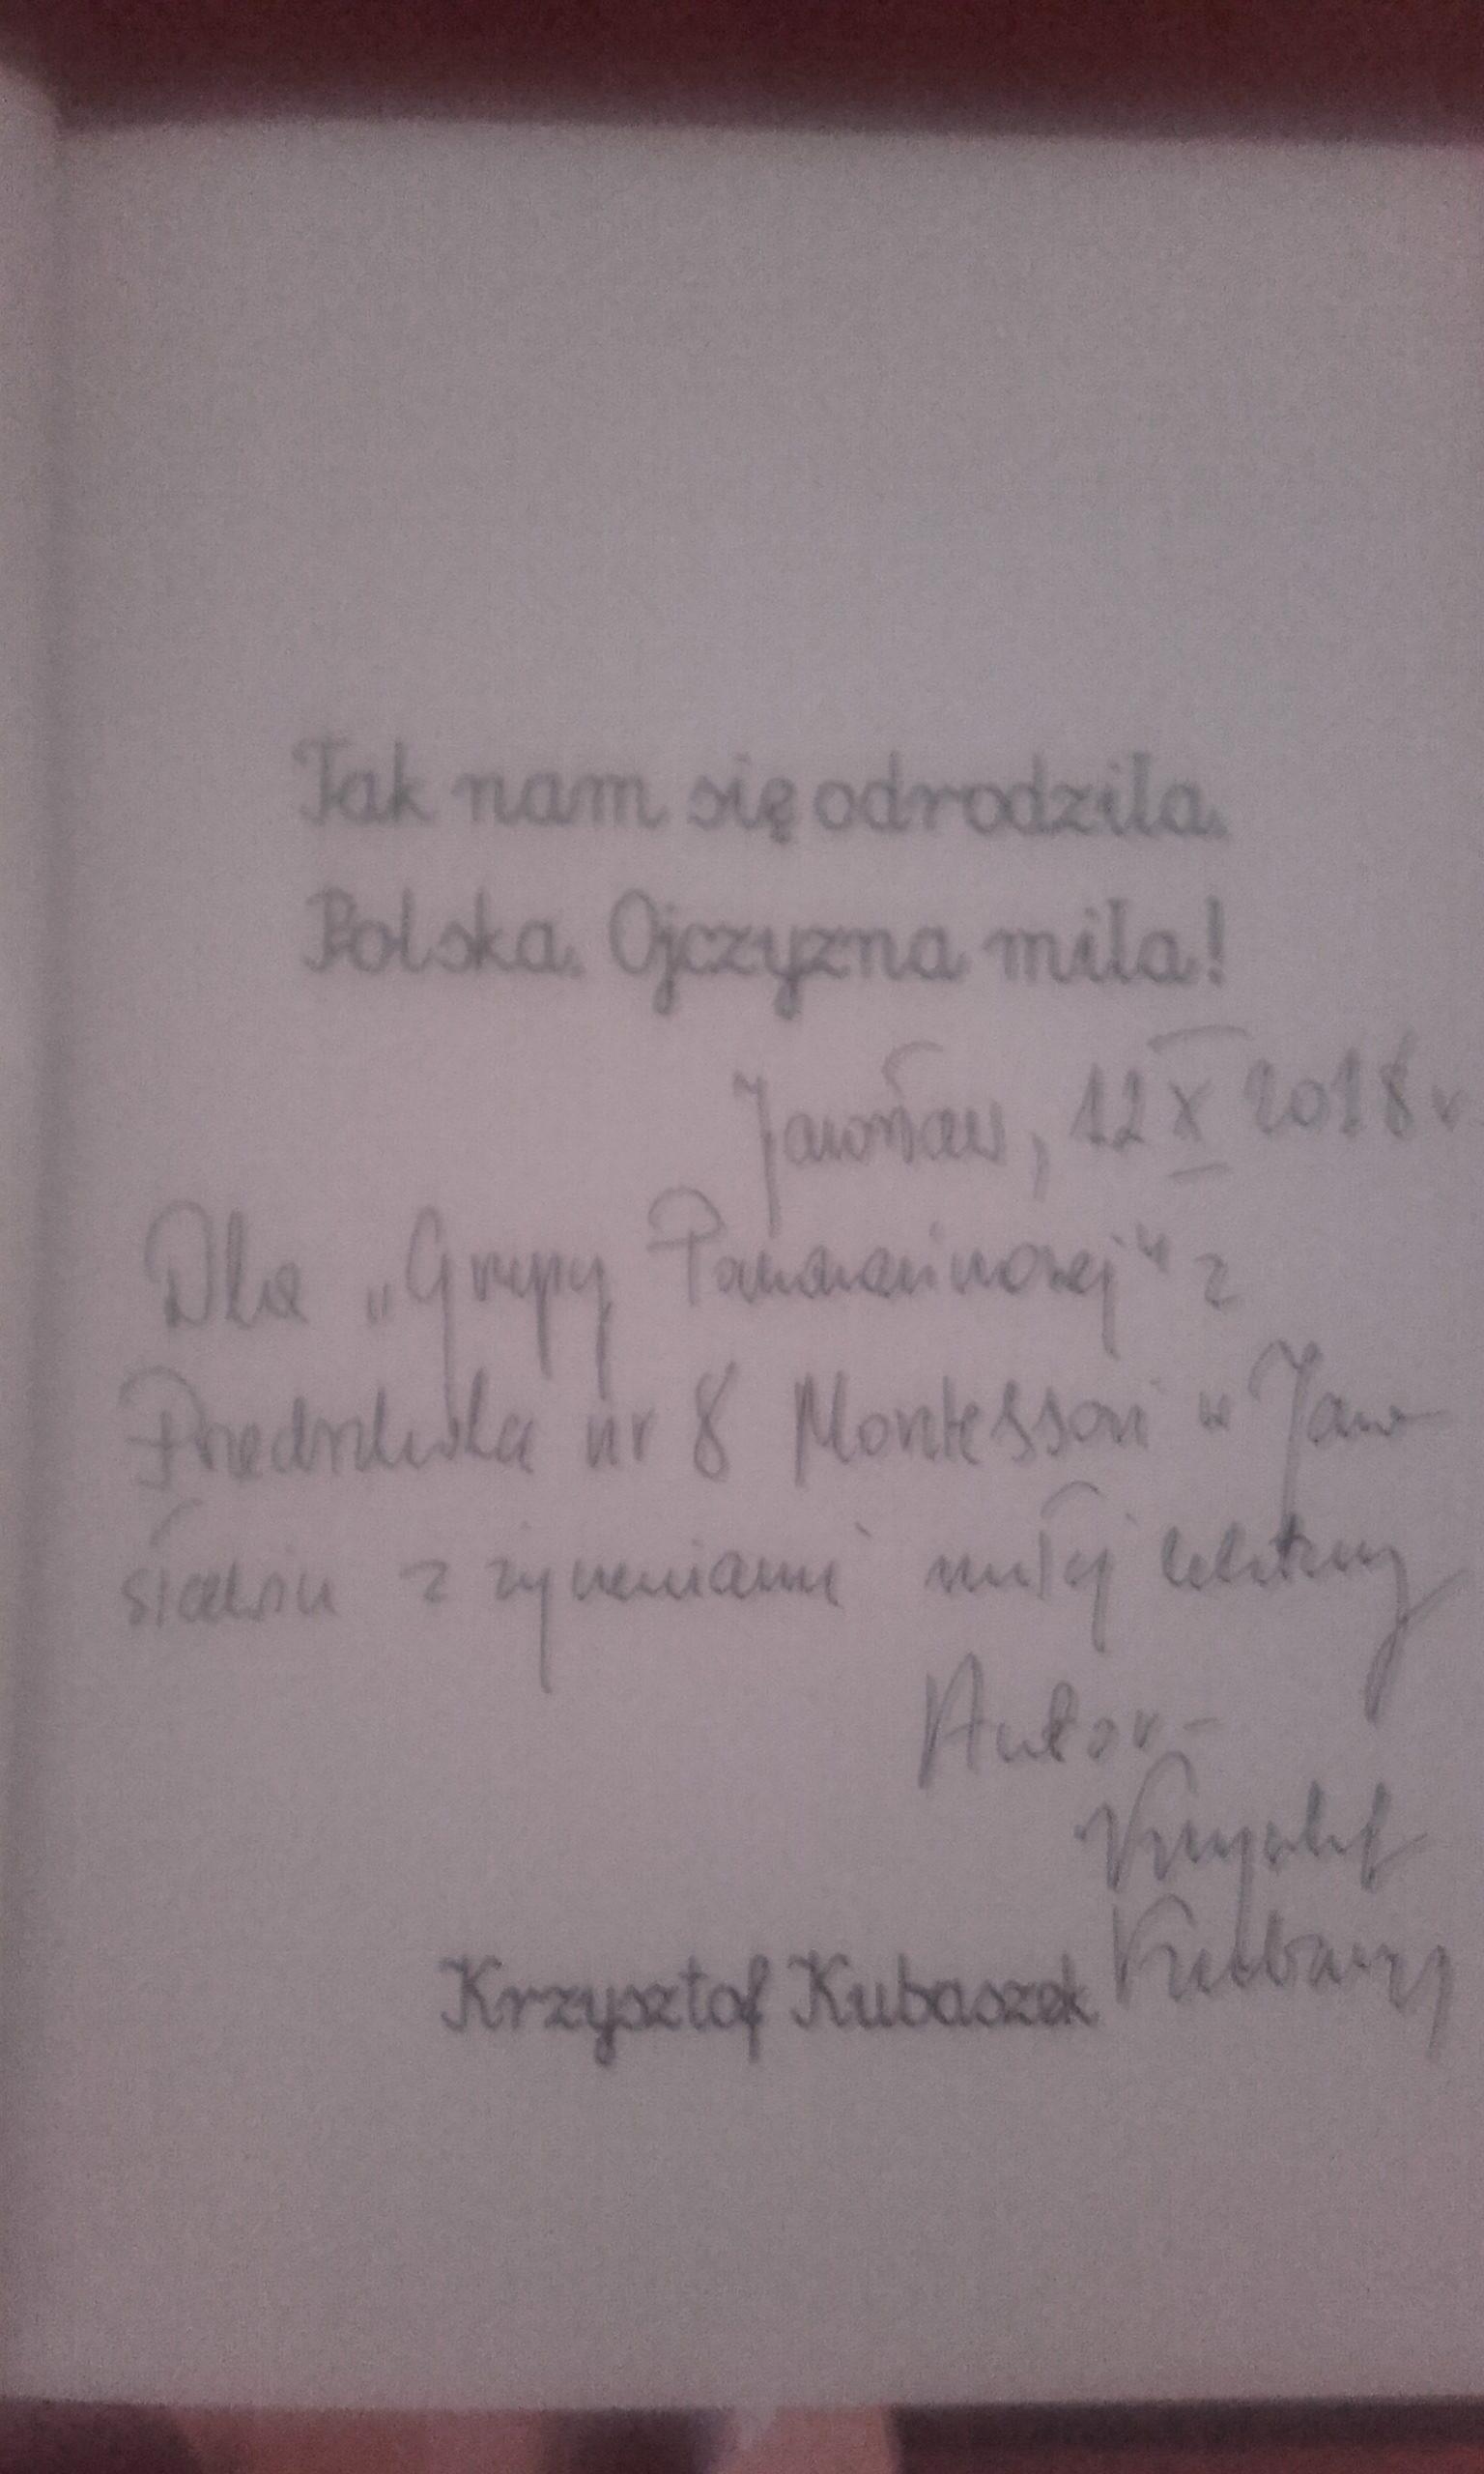 Tak nam się odrodziła
Polska. Ojczyzna miła!
Jarosław, 12 X 2018 r.
Dla „Grupy Pomarańczowej" z
Przedszkola nr 8 Montessori w Jaro-
sławiu z życzeniami miłej lektury
Autor -
Krzysztof
Krzysztof Kubaszek